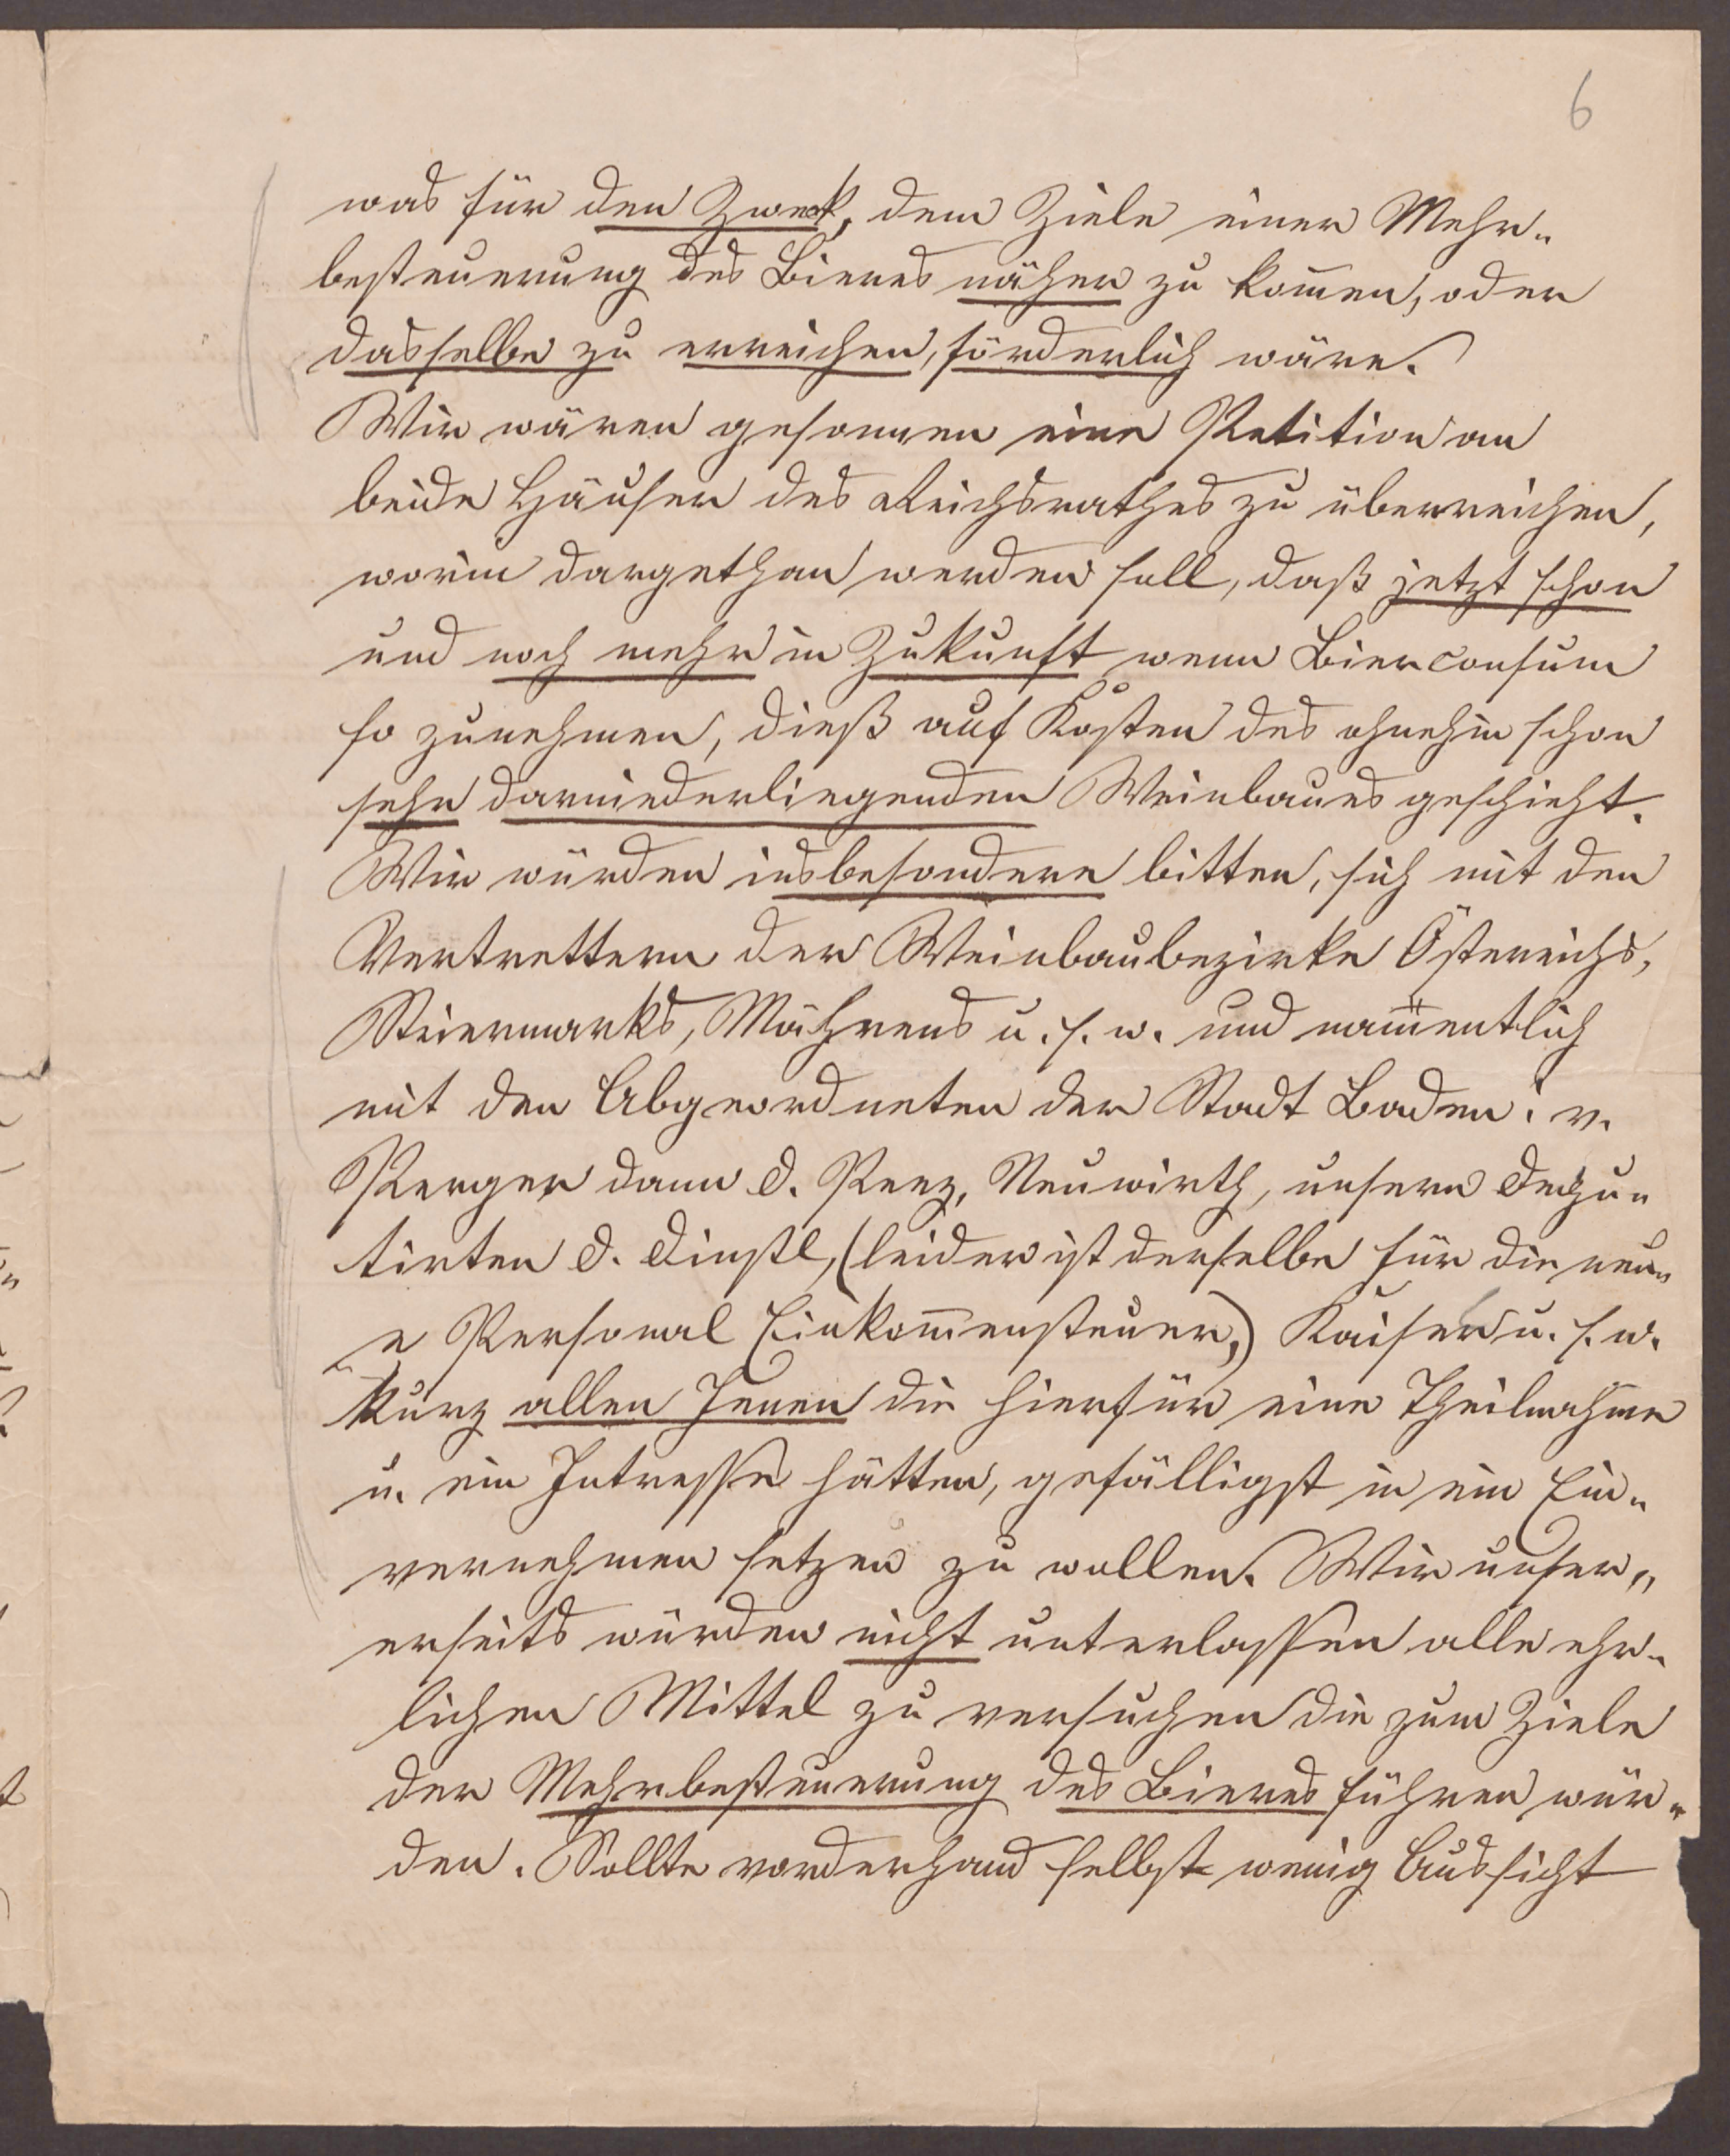 6
was für den Zweck, dem Ziele einer Mehr-
besteuerung des Bieres näher zu kom̅en, oder
dasselbe zu erreichen, förderlich wäre.
Wir wären gesonnen eine Petition an
beide Häuser des Reichsrathes zu überreichen,
worin dargethan werden soll, daß jetzt schon
und noch mehr in Zukunft wenn Bierconsum
so zunehmen, dieß auf Kosten des ohnehin schon
sehr darniederliegenden Weinbaues geschieht.
Wir würden insbesondere bitten, sich mit den
Vertrettern der Weinbaubezirke Österreichs,
Steiermarks, Mährens u. s. w. und nam̅entlich
mit den Abgeordneten der Stadt Baden: v.
Perger dann d. Neuwirth, unsern Depu-
tirten d. Dinstl, (leider ist derselbe für die neu-
e Personal Einkom̅ensteuer,) Kaiser u. s. w.
kurz allen Jenen die hierfür eine Theilnahme
u. ein Intresse hätten, gefälligst in ein Ein-
vernehmen setzen zu wollen. Wir unser-
erseits würden nicht unterlassen alle ehr-
lichen Mittel zu versuchen die zum Ziele
der Mehrbesteuerung des Bieres führen wür-
den. Sollte vorderhand selbst wenig Aussicht